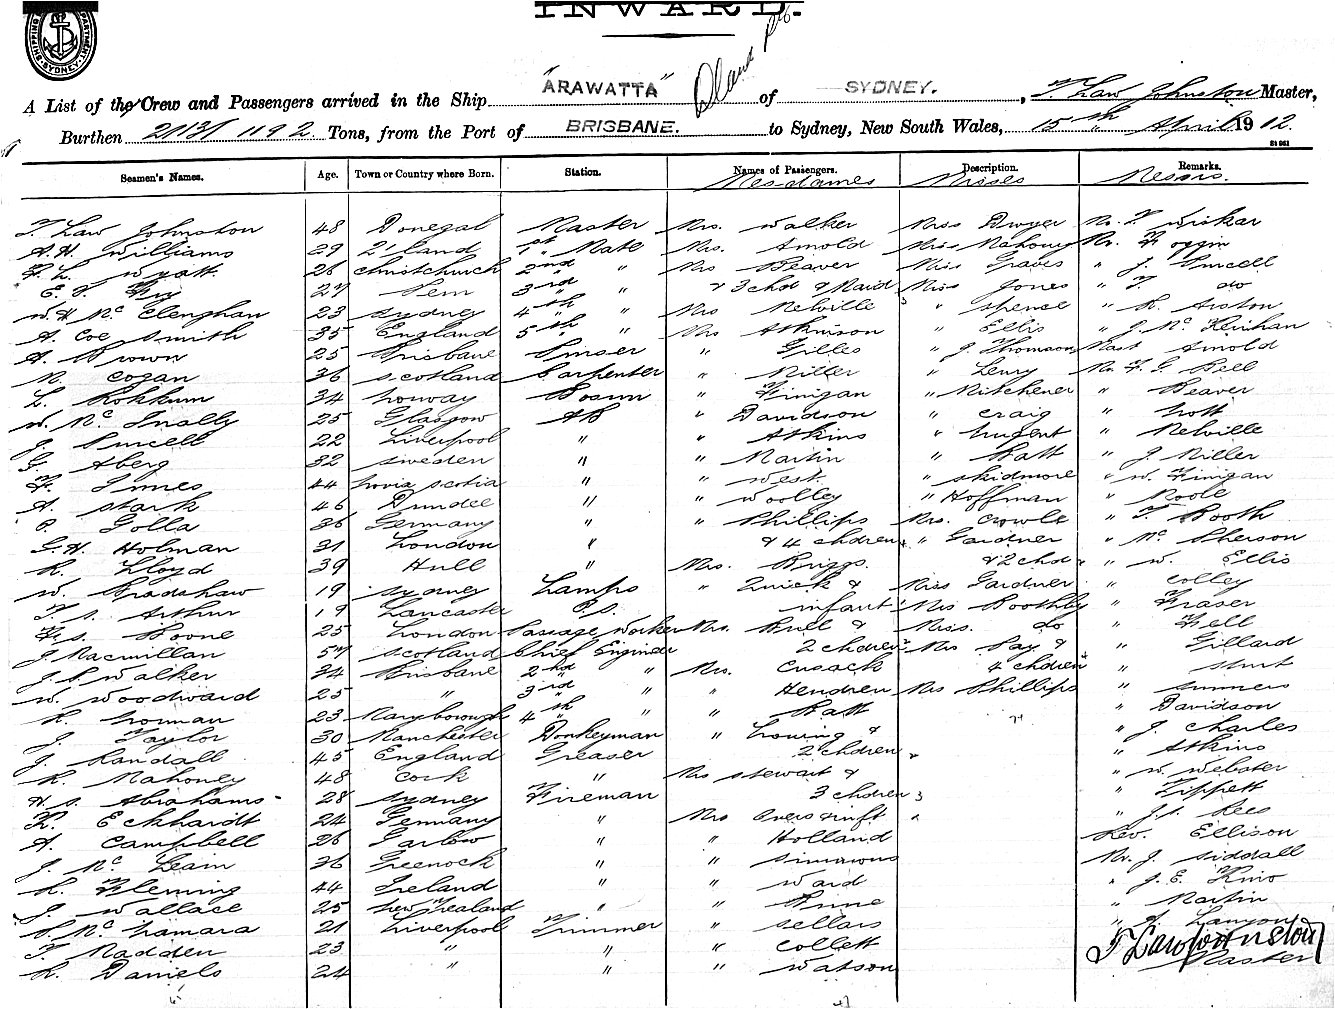 INWARD.
SHIPPING DEPARTMENT, SYDNEY.
A List of the Crew and Passengers arrived in the Ship "ARAWATTA" of SYDNEY. , T. Law Johnston Master,
Burthen 2131/1192 Tons, from the Port of BRISBANE. to Sydney, New South Wales, 15th April 1912.
Seamen's Names. Age. Town or Country where Born. Station. Names of Passengers. Description. Remarks.
Mesdames Misses Messrs.
T. Law Johnston 48 Donegal Master Mrs. Walker Miss Dwyer Mr. Wickar
A. H. Williams 29 Zland 1st Mate Mrs. Arnold Miss Mahony Mr. F Oggin
F. L. Wyatt 26 Christchurch 2nd " Mrs Beaver Miss Graves " J. Purcell
E. Fry 27 3rd " & 3 chd & Maid Miss Jones " T. do
W. H Mc Clenghan 23 Sydney 4th " Mrs Melville " Spence " Aiston
A. Coe Smith 35 England 5th " Mrs Atkinson " Ellis " J. Mc
A. Brown 25 Brisbane Purser " Gilles " J. Thomson Mast Arnold
M Cogan 36 Scotland Carpenter " Miller " Lenry Mr. F. G. Bell
L. Rokkum 34 Norway Bosun " Finigan " Kitchener " Beaver
W. Mc Inally 25 Glasgow AB " Davidson " Craig " Nott
J. Purcell 22 Liverpool " " Atkins " Nugent " Melville
G. Aberg 32 Sweden " " Martin " Batt " J Miller
F. Innes 44 Novia Scotia " " West. " Skidmore " W. Finigan
A. Stark 46 Dundee " " Woolley " Hoffman "
P. Golla 36 Germany " " Phillips Mrs. Crowle " T. Booth
G. H. Holman 31 London " & 4 chdren " Gardner " Mc Pherson
R. Lloyd 39 Hull " Mrs. Briggs. & 2 chd " W. Ellis
W. Bradshaw 19 Sydney Lamps " Quick & Miss Gardner " Colley
T. S. Arthur 19 Lancaster O.S. infant Mrs Boothby " Fraser
F. S. Boone 25 London Passage Worker Mrs. & Miss. do " Fell
J Macmillan 57 Scotland Chief Engineer 2 chdren Mrs Day & " Gillard
J. P Walker 34 Brisbane 2nd " Mrs. Cusack 4 chdren " Sturt
W. Woodward 25 " 3rd " " Hendren Mrs Phillips " Sumners
R. Norman 23 Maryborough 4th " " Batt " Davidson
J. Taylor 30 Manchester Donkeyman " & " J. Charles
J. Randall 45 England Greaser 2 chdren " Atkins
R. Mahoney 48 Cork " Mrs Stewart & " W. Webster
H. S. Abrahams 28 Sydney Fireman 3 chdren " Tippett
R. Eckhardt 24 Germany " Mrs Overs & inft " J. S. Rees
A. Campbell 26 " " Holland Rev. Ellison
J. Mc Leain 36 Greenock " " Simmons Mr. J. Siddall
R. Fleming 44 Ireland " " Ward " J. E. King
J. Wallace 25 New Zealand " " Rune " Martin
P. Mc Namara 21 Liverpool Trimmer " Sellars " Lanyon
T. Madden 23 " " " Collett T Law Johnston
R. Daniels 24 " " " Watson Master